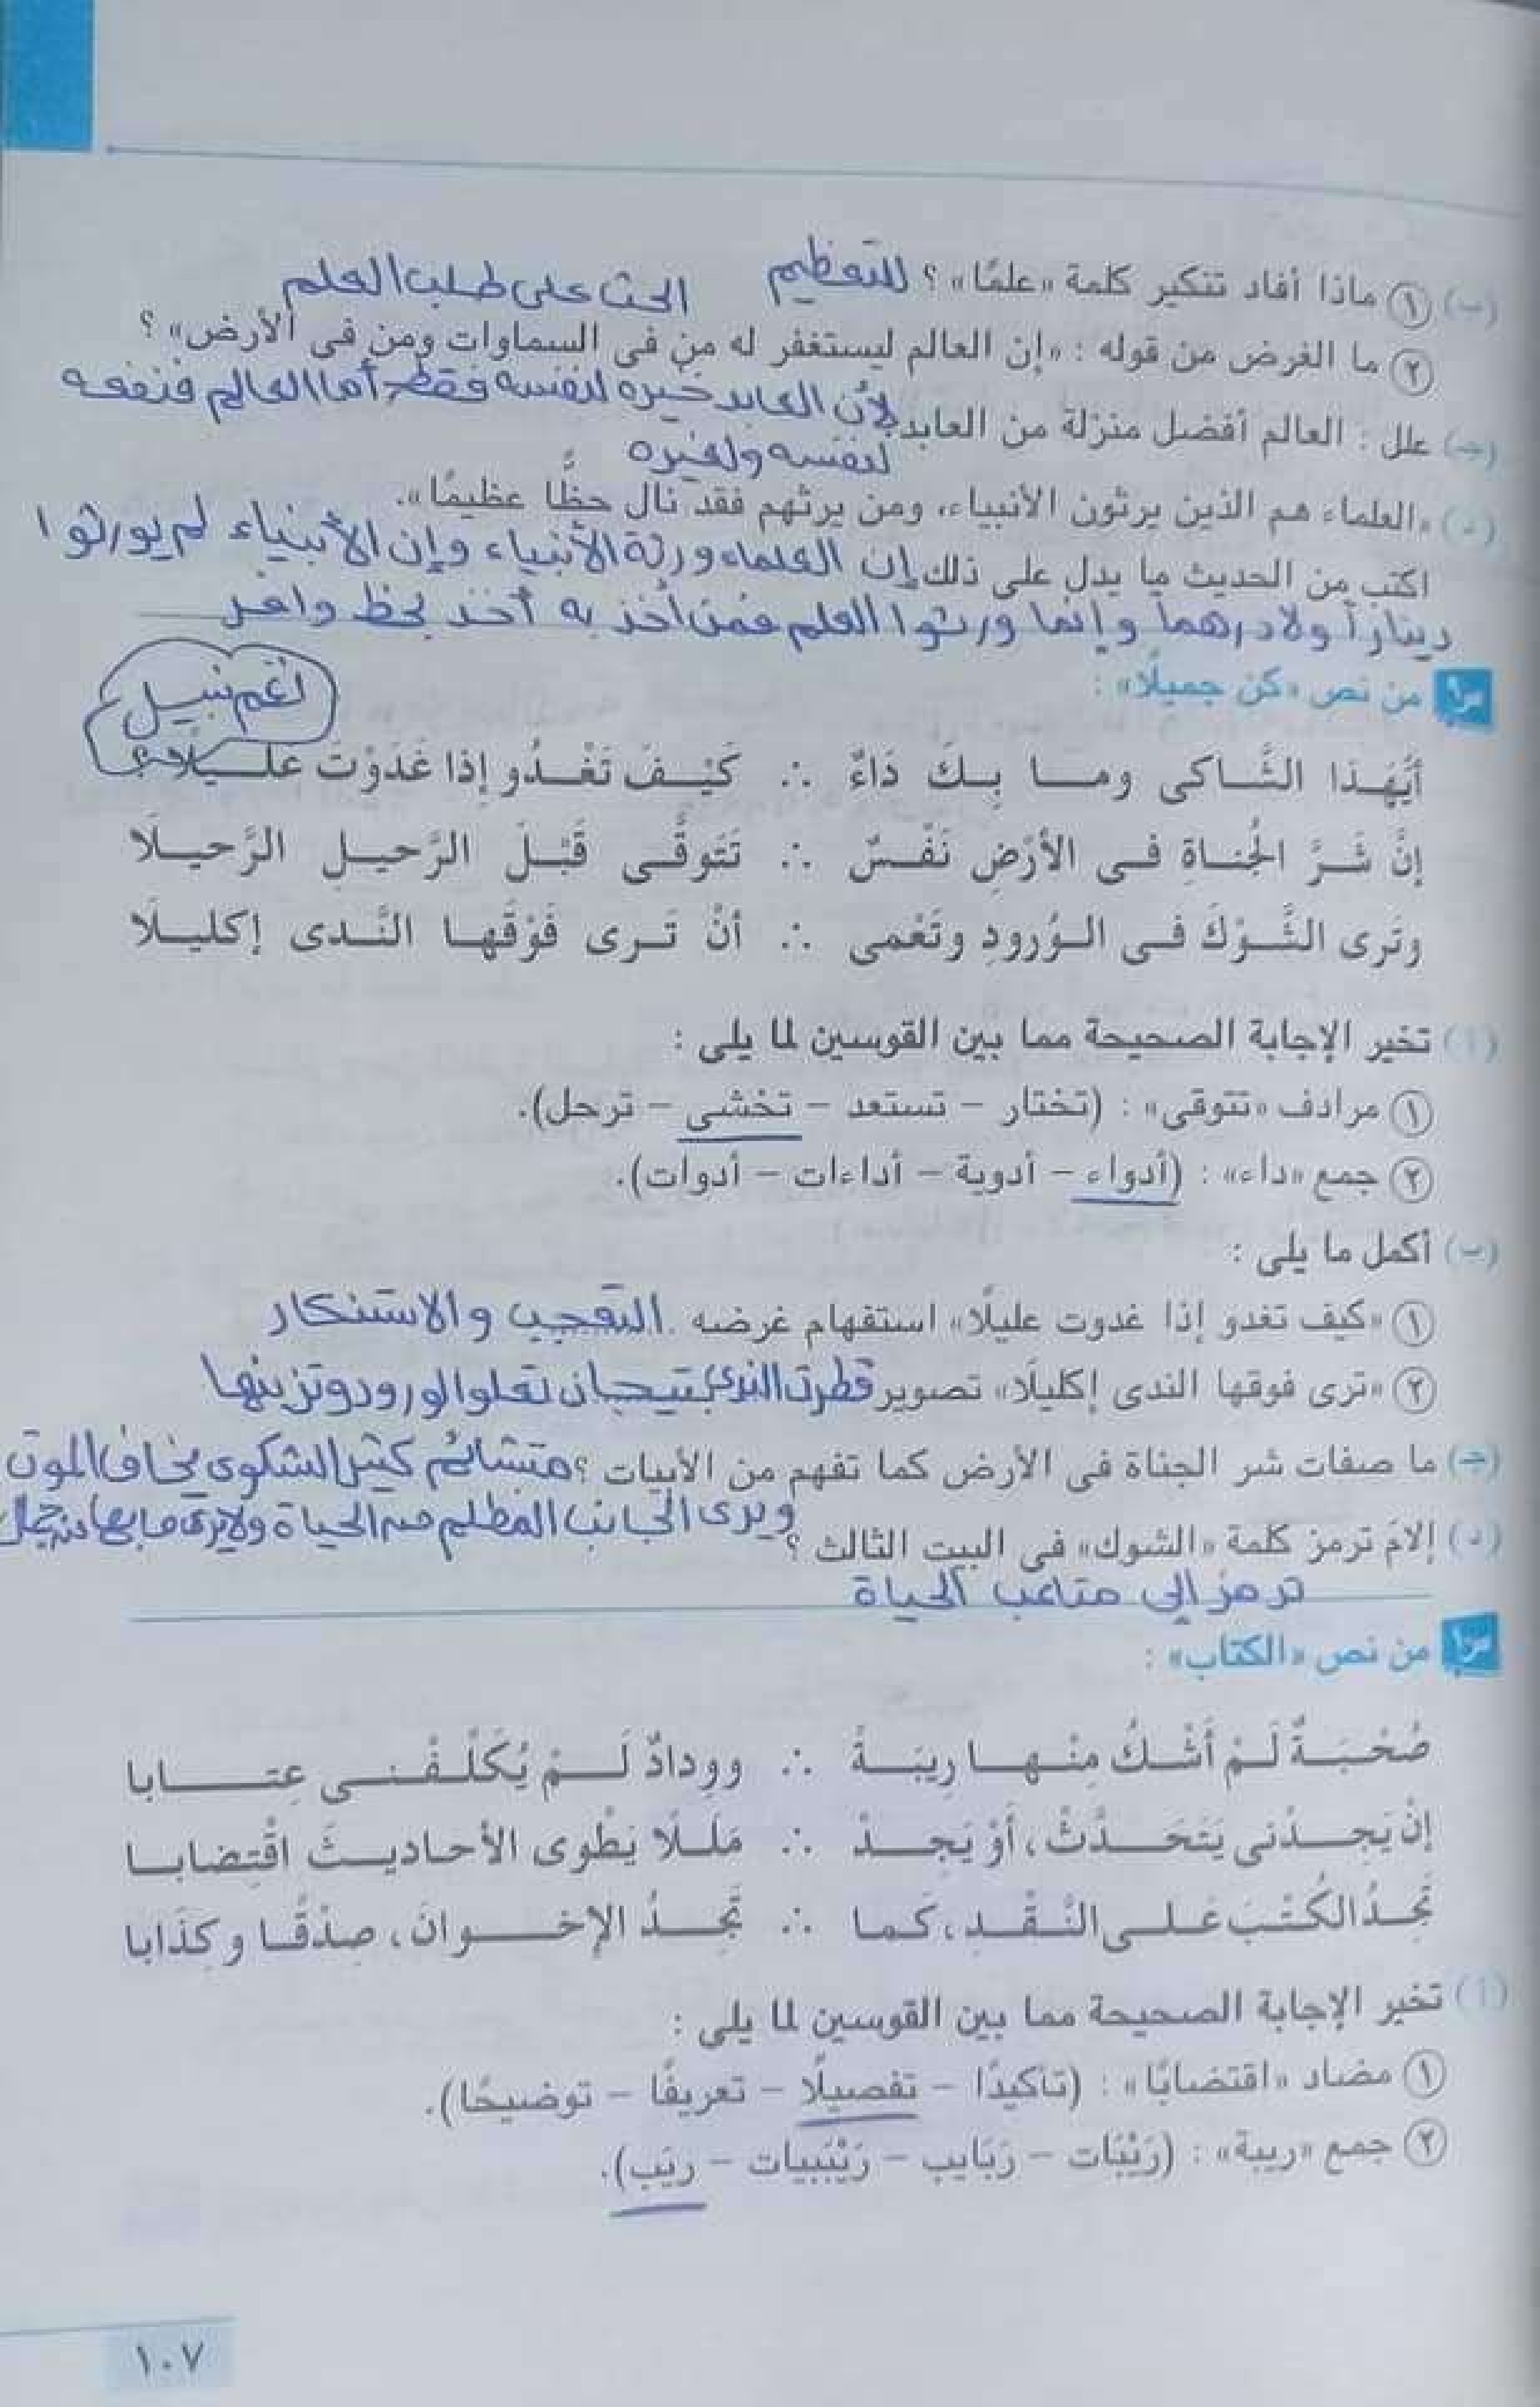 (ب) ١ ماذا أفاد تنكير كلمة «علمًا» ؟ للتعظيم
الحث على طلب العلم
٢ ما الغرض من قوله : «إن العالم ليستغفر له من فى السماوات ومن فى الأرض» ؟
(جـ) علل : العالم أفضل منزلة من العابد. لأن العابد خيره لنفسه فقط أما العالم فنفعه
لنفسه ولغيره
(د) «العلماء هم الذين يرثون الأنبياء، ومن يرثهم فقد نال حظًّا عظيمًا».
اكتب من الحديث ما يدل على ذلك إن العلماء ورثة الأنبياء وإن الأنبياء لم يورثوا
ديناراً ولا درهما وإنما ورثوا العلم فمن أخذ به أخذ بحظ وافر
نغم نبيل
س٩ من نص «كن جميلًا» :
أيُّهَذا الشَّاكى وما بِكَ دَاءٌ ∴ كَيْفَ تَغْدُو إذا غَدَوْتَ عليلًا ؟
إنَّ شَرَّ الجُناةِ فى الأرْضِ نَفْسٌ ∴ تَتَوقَّى قَبْلَ الرَّحيلِ الرَّحيلَا
وتَرى الشَّوْكَ فى الوُرودِ وتَعْمى ∴ أنْ تَرى فَوْقَها النَّدى إكليلَا
(أ) تخير الإجابة الصحيحة مما بين القوسين لما يلى :
١ مرادف «تتوقى» : (تختار – تستعد – تخشى – ترحل).
٢ جمع «داء» : (أدواء – أدوية – أداءات – أدوات).
(ب) أكمل ما يلى :
١ «كيف تغدو إذا غدوت عليلًا» استفهام غرضه التعجب والاستنكار
٢ «ترى فوقها الندى إكليلًا» تصوير قطرات الندى بتيجان تعلو الورود وتزينها
(جـ) ما صفات شر الجناة فى الأرض كما تفهم من الأبيات ؟ متشائم كثير الشكوى يخاف الموت
ويرى الجانب المظلم من الحياة ولا يرى ما بها من جمال
(د) إلامَ ترمز كلمة «الشوك» فى البيت الثالث ؟
ترمز إلى متاعب الحياة
س١٠ من نص «الكتاب» :
صُحْبَةٌ لَمْ أَشْكُ مِنْها رِيبَةً ∴ وودادٌ لَمْ يُكَلِّفْنى عِتابا
إنْ يَجِدْنى يَتَحَدَّثْ، أوْ يَجِدْ ∴ مَلَلًا يَطْوى الأحاديثَ اقْتِضابا
تَجِدُ الكُتْبَ عَلى النَّقْدِ، كَما ∴ تَجِدُ الإخوانَ، صِدْقًا وكِذَابا
(أ) تخير الإجابة الصحيحة مما بين القوسين لما يلى :
١ مضاد «اقتضابًا» : (تأكيدًا – تفصيلًا – تعريفًا – توضيحًا).
٢ جمع «ريبة» : (رَيْبَات – رَبَايب – رَيْبَيات – رِيَب).
١٠٧